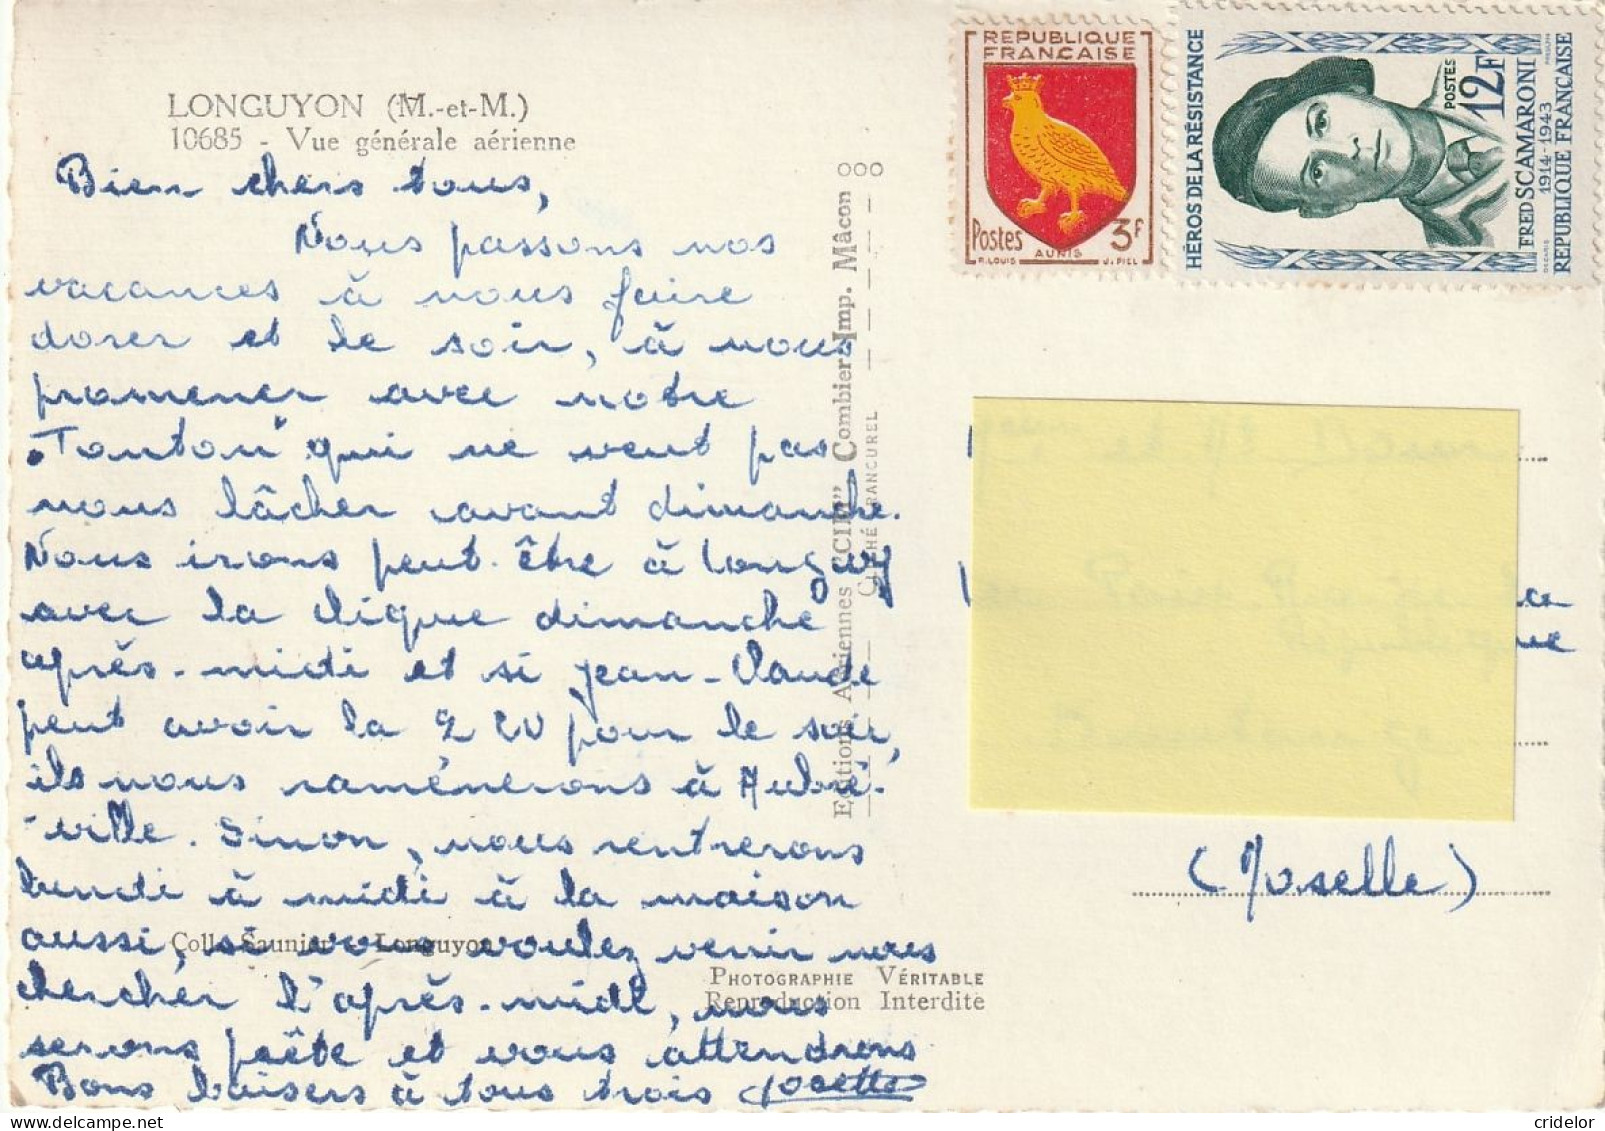 LONGUYON (M.-et-M.)
10685 - Vue générale aérienne
Bien chers tous,
Nous passons nos
vacances à nous faire
dorer et le soir, à nous
promener avec notre
"Tonton" qui ne veut pas
nous lâcher avant dimanche.
Nous irons peut-être à Longwy
avec la clique dimanche
après-midi et si Jean-Claude
peut avoir la 2 CV pour le soir,
ils nous ramènerons à Aubré-
-ville. Sinon, nous rentrerons
lundi à midi à la maison
aussi, si vous voulez venir nous
chercher l'après-midi, nous
serons prête et vous attendrons
Bons baisers à tous trois Josette
Colle Saunier Longuyon
PHOTOGRAPHIE VÉRITABLE
Reproduction Interdite
Editions Aériennes "CIM" Combier Imp. Mâcon
CLICHÉ FRANCUREL
REPUBLIQUE
FRANÇAISE
Postes 3F
AUNIS
R. LOUIS J. PIEL
HÉROS DE LA RÉSISTANCE
POSTES 12F
FRED SCAMARONI
1914-1943
REPUBLIQUE FRANÇAISE
DECARIS
(Moselle)
cridelor
www.delcampe.net